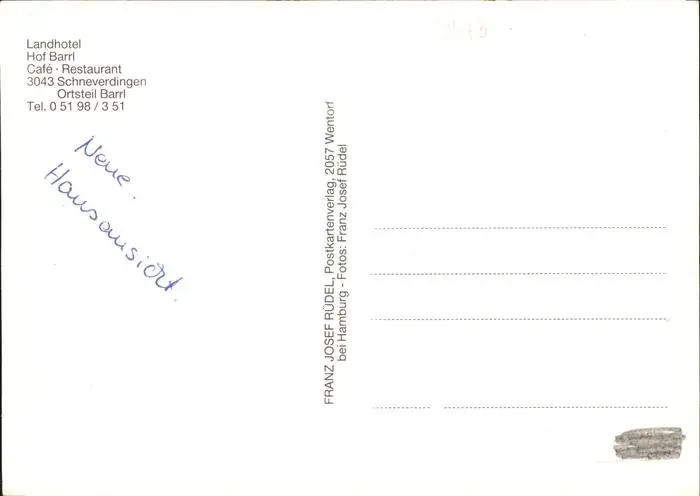 Landhotel
Hof Barrl
Café · Restaurant
3043 Schneverdingen
Ortsteil Barrl
Tel. 0 51 98 / 3 51
Neue.
Hausansicht.
FRANZ JOSEF RÜDEL, Postkartenverlag, 2057 Wentorf
bei Hamburg - Fotos: Franz Josef Rüdel